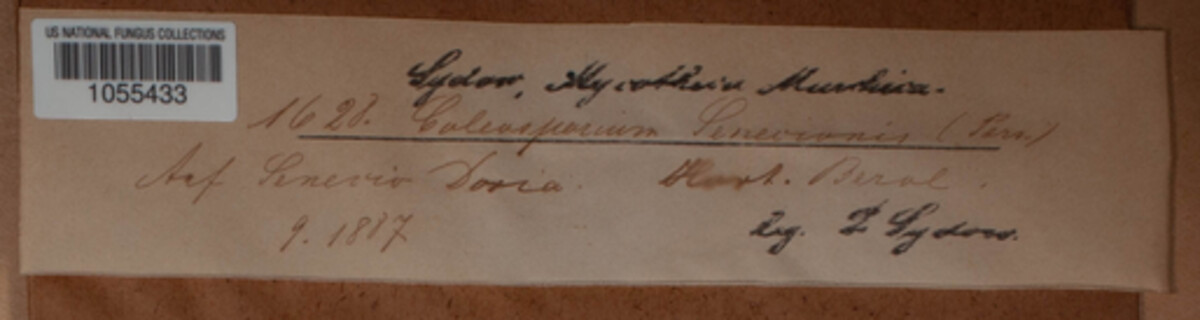 US NATIONAL FUNGUS COLLECTIONS
1055433
Sydow, Mycotheca Marchica.
1628. Coleosporium Senecionis (Pers.)
Auf Senecio Doria. Hort. Berol.
9. 1887
Leg. P. Sydow.